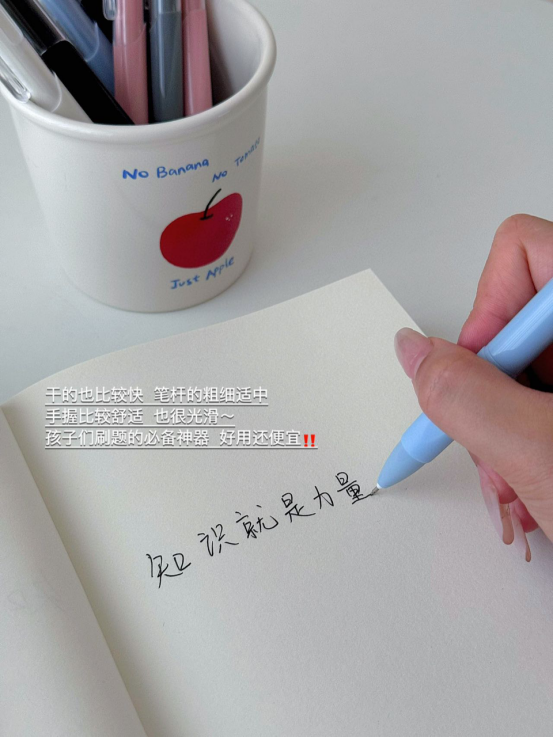 No Banana
No Tomato
Just Apple
干的也比较快 笔杆的粗细适中
手握比较舒适 也很光滑～
孩子们刷题的必备神器 好用还便宜‼️
知识就是力量